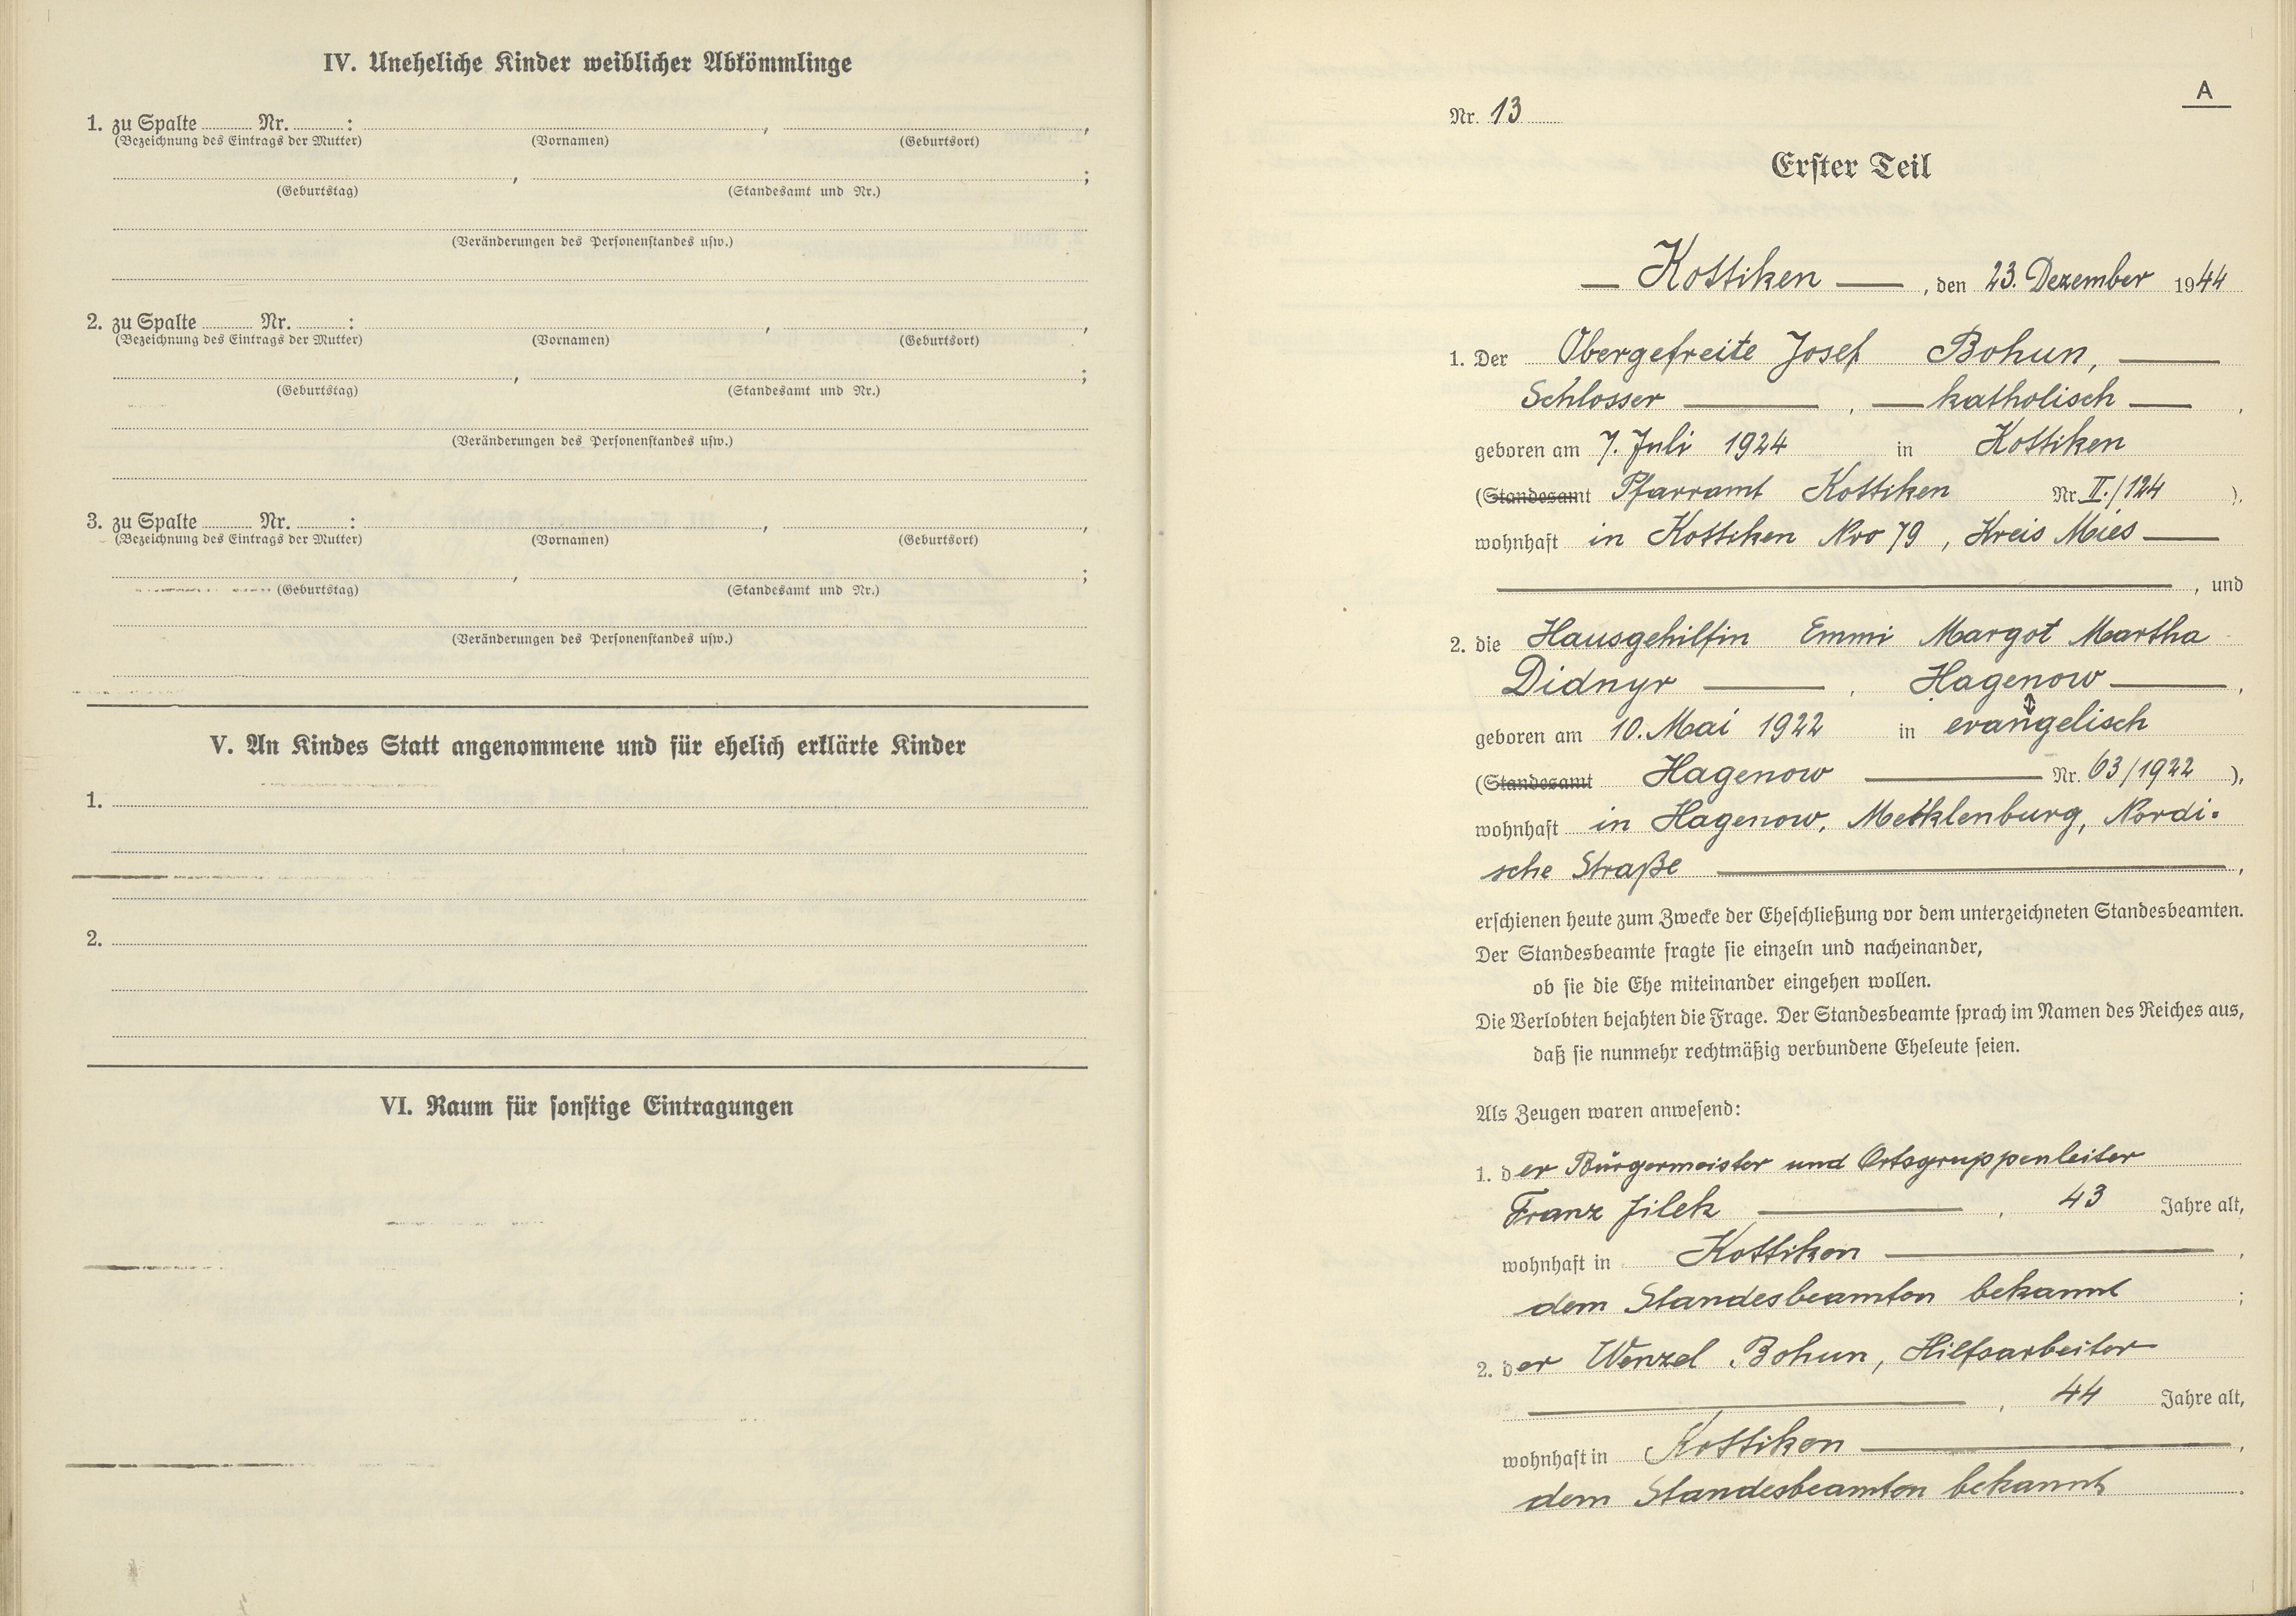 IV. Uneheliche Kinder weiblicher Abkömmlinge
1. zu Spalte ........ Nr. ........ : ........ , ........ ,
(Bezeichnung des Eintrags der Mutter) (Vornamen) (Geburtsort)
........ , ........ ;
(Geburtstag) (Standesamt und Nr.)
(Veränderungen des Personenstandes usw.)
2. zu Spalte ........ Nr. ........ : ........ , ........ ,
(Bezeichnung des Eintrags der Mutter) (Vornamen) (Geburtsort)
........ , ........ ;
(Geburtstag) (Standesamt und Nr.)
(Veränderungen des Personenstandes usw.)
3. zu Spalte ........ Nr. ........ : ........ , ........ ,
(Bezeichnung des Eintrags der Mutter) (Vornamen) (Geburtsort)
........ , ........ ;
(Geburtstag) (Standesamt und Nr.)
(Veränderungen des Personenstandes usw.)
V. An Kindes Statt angenommene und für ehelich erklärte Kinder
1.
2.
VI. Raum für sonstige Eintragungen
A
Nr. 13
Erster Teil
— Kottiken — , den 23. Dezember 1944
1. Der Obergefreite Josef Bohun, —
Schlosser — , — katholisch — ,
geboren am 7. Juli 1924 in Kottiken
(Standesamt Pfarramt Kottiken Nr. II./124 ),
wohnhaft in Kottiken Nro 79, Kreis Mies —
— , und
2. die Hausgehilfin Emmi Margot Martha
Didnyr — , Hagenow — ,
geboren am 10. Mai 1922 in evangelisch
(Standesamt Hagenow — Nr. 63/1922 ),
wohnhaft in Hagenow, Mecklenburg, Nordi-
sche Straße — ,
erschienen heute zum Zwecke der Eheschließung vor dem unterzeichneten Standesbeamten.
Der Standesbeamte fragte sie einzeln und nacheinander,
ob sie die Ehe miteinander eingehen wollen.
Die Verlobten bejahten die Frage. Der Standesbeamte sprach im Namen des Reiches aus,
daß sie nunmehr rechtmäßig verbundene Eheleute seien.
Als Zeugen waren anwesend:
1. der Bürgermeister und Ortsgruppenleiter
Franz Jilek — , 43 Jahre alt,
wohnhaft in Kottiken — ,
dem Standesbeamten bekannt ;
2. der Wenzel Bohun, Hilfsarbeiter
— , 44 Jahre alt,
wohnhaft in Kottiken — ,
dem Standesbeamten bekannt .